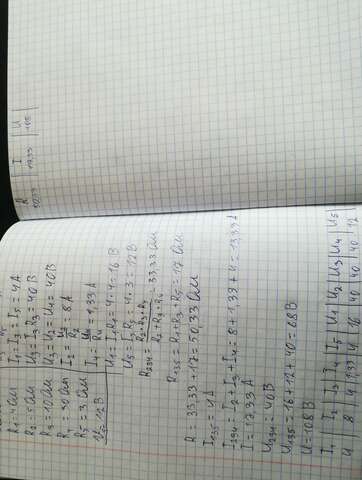 R₁=4Ом
R₂=5Ом
R₃=10Ом
R₄=30Ом
R₅=3Ом
U₅=12В
I₁=I₃=I₅=4А
U₃=I₃R₃=40В
U₃=U₂=U₄=40В
I₂=U₂/R₂=8А
I₄=U₄/R₄=1,33А
U₁=I₁R₁=4·4=16В
U₅=I₅R₅=4·3=12В
=33,33 Ом
R₁₃₅=R₁+R₃+R₅=17Ом
R=33,33+17=50,33Ом
I₁₃₅=4А
I₂₃₄=I₂+I₃+I₄=8+1,33+4=13,33А
I=13,33А
U₂₃₄=40В
U₁₃₅=16+12+40=68В
U=108В
I₁ | I₂ | I₃ | I₄ | I₅ | U₁ | U₂ | U₃ | U₄ | U₅
4 | 8 | 4 | 1,33 | 4 | 16 | 40 | 40 | 40 | 12
R | I | U
50,33 | 13,33 | 108